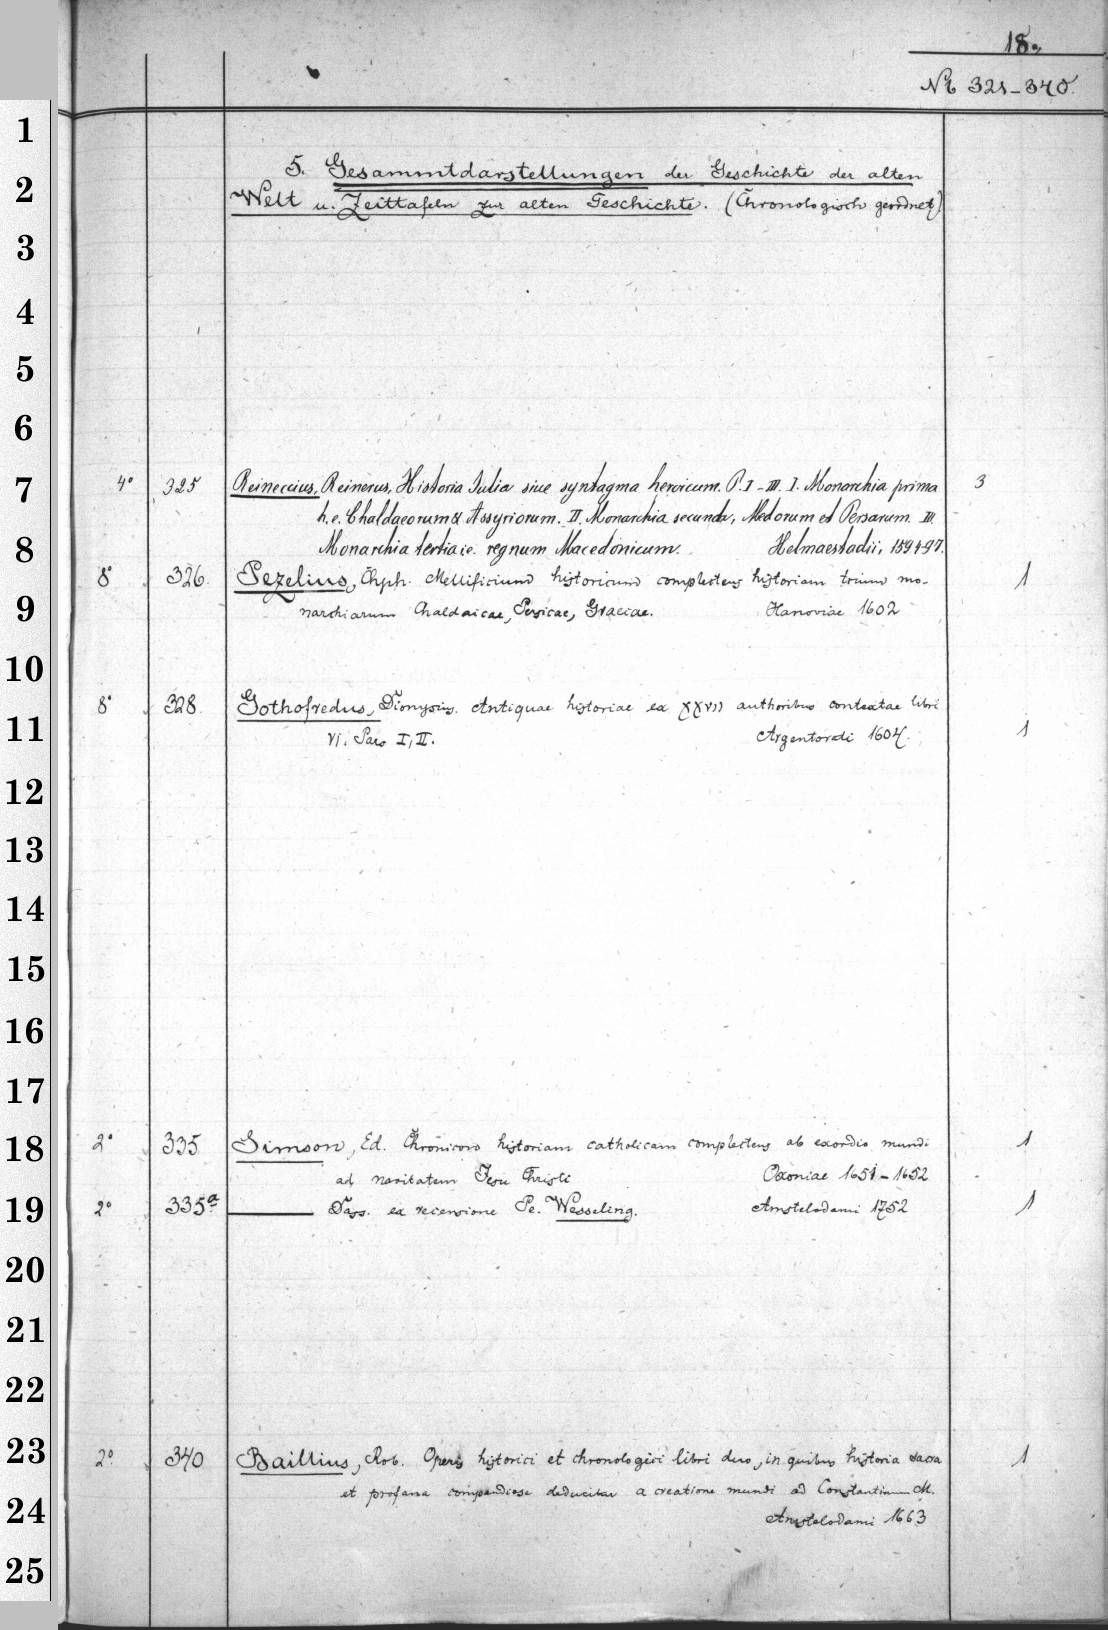 18.
№ 321-340.
5. Gesammtdarstellungen der Geschichte der alten
Welt u. Zeittafeln zur alten Geschichte. (Chronologisch geordnet)
4° 325 Reineccius, Reinerus, Historia Julia sive syntagma heroicum. P. I-III. I. Monarchia prima 3
h.e. Chaldaeorum & Assyriorum. II. Monarchia secunda, Medorum et Persarum. III.
Monarchia tertia i.e. regnum Macedonicum. Helmaestadii, 1594-97.
8° 326. Pezelius, Chph. Mellificium historicum complectens historiam trium mo- 1
narchiarum Chaldaicae, Persicae, Graecae. Hanoviae 1602
8° 328 Gothofredus, Dionysius. Antiquae historiae ex XXVII authoribus contextae libri
VI. Pars I, II. Argentorati 1604. 1
2° 335 Simson, Ed. Chronicon historiam catholicam complectens ab exordio mundi 1
ad nativitatem Jesu Christi Oxoniae 1651-1652
2° 335a ——— Dass. ex recensione Pe. Wesseling. Amstelodami 1752 1
2° 340 Baillius, Rob. Operis historici et chronologici libri duo, in quibus historia sacra 1
et profana compendiose deducitur a creatione mundi ad Constantinum M.
Amstelodami 1663
1
2
3
4
5
6
7
8
9
10
11
12
13
14
15
16
17
18
19
20
21
22
23
24
25